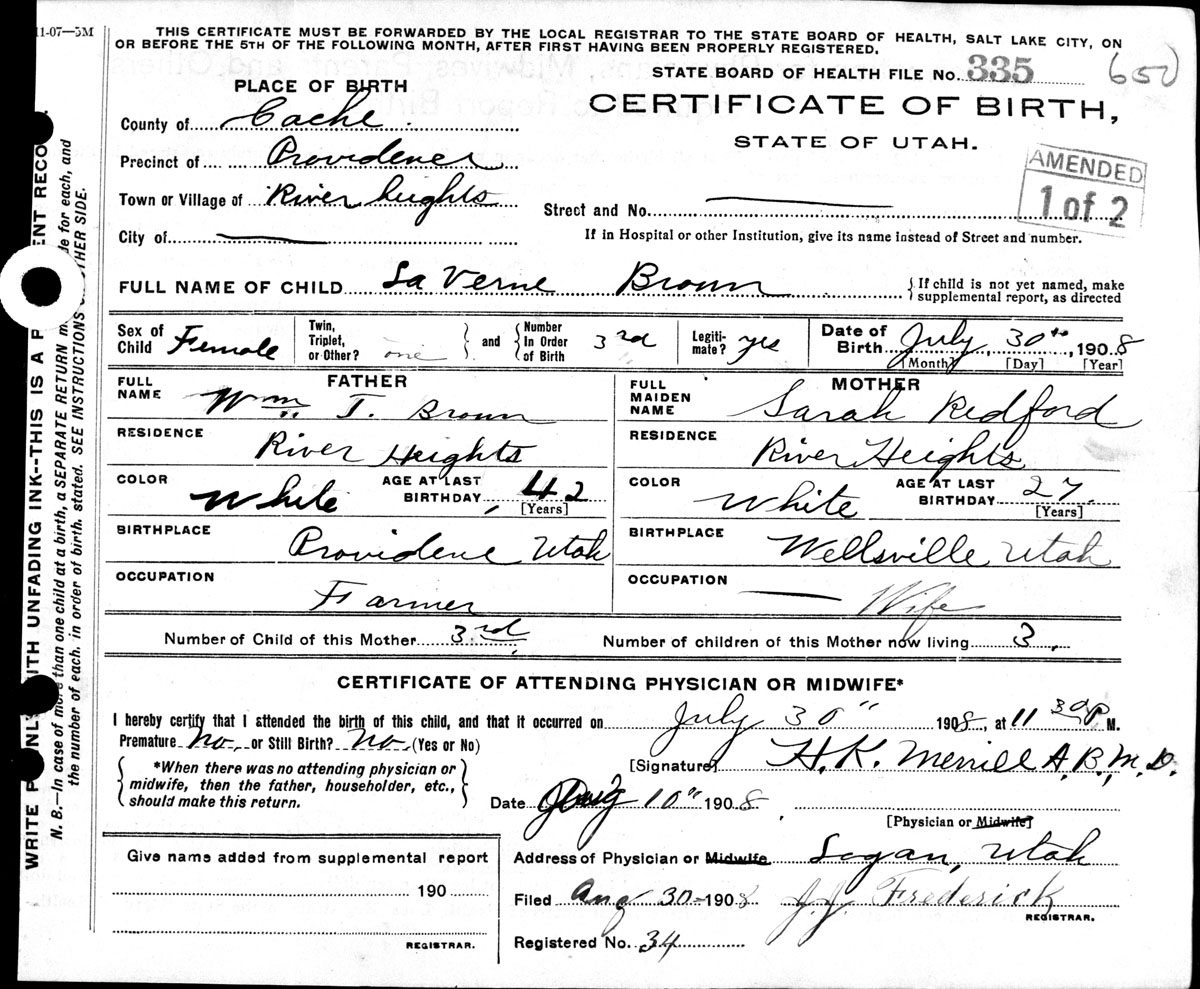 11-07—5M
THIS CERTIFICATE MUST BE FORWARDED BY THE LOCAL REGISTRAR TO THE STATE BOARD OF HEALTH, SALT LAKE CITY, ON
OR BEFORE THE 5TH OF THE FOLLOWING MONTH, AFTER FIRST HAVING BEEN PROPERLY REGISTERED.
STATE BOARD OF HEALTH FILE No. 335 650
PLACE OF BIRTH
CERTIFICATE OF BIRTH,
STATE OF UTAH.
AMENDED
1 of 2
County of Cache
Precinct of Providence
Town or Village of River heights
Street and No.
City of
If in Hospital or other Institution, give its name instead of Street and number.
FULL NAME OF CHILD La Verne Brown { If child is not yet named, make
supplemental report, as directed
Sex of Child Female Twin, Triplet, or Other? one and Number In Order of Birth 3rd Legiti-mate? yes Date of Birth July, 30th, 1908
[Month] [Day] [Year]
FATHER MOTHER
FULL NAME Wm T. Brown FULL MAIDEN NAME Sarah Redford
RESIDENCE River Heights RESIDENCE River Heights
COLOR White AGE AT LAST BIRTHDAY 42 [Years] COLOR White AGE AT LAST BIRTHDAY 27 [Years]
BIRTHPLACE Providence Utah BIRTHPLACE Wellsville Utah
OCCUPATION Farmer OCCUPATION Wife
Number of Child of this Mother 3rd Number of children of this Mother now living 3
CERTIFICATE OF ATTENDING PHYSICIAN OR MIDWIFE*
I hereby certify that I attended the birth of this child, and that it occurred on July 30" 1908, at 11 30 P M.
Premature No, or Still Birth? No (Yes or No)
[Signature] H. K. Merrill A.B., M.D.
*When there was no attending physician or
midwife, then the father, householder, etc.,
should make this return.
Date Aug 10" 1908
[Physician or Midwife]
Address of Physician or Midwife Logan, Utah
Filed Aug 30 1908 J.J. Frederick
REGISTRAR.
Registered No. 34
Give name added from supplemental report
190
REGISTRAR.
WRITE PLAINLY WITH UNFADING INK--THIS IS A PERMANENT RECORD.
N. B.—In case of more than one child at a birth, a SEPARATE RETURN must be made for each, and
the number of each, in order of birth, stated. SEE INSTRUCTIONS ON OTHER SIDE.